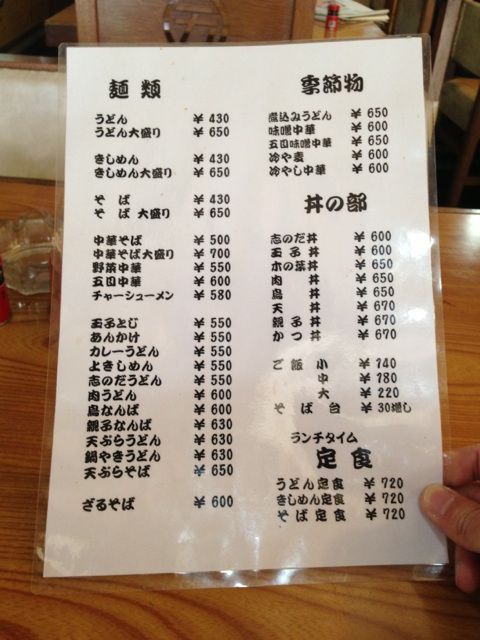 麺類
うどん ¥430
うどん大盛り ¥650
きしめん ¥430
きしめん大盛り ¥650
そば ¥430
そば 大盛り ¥650
中華そば ¥500
中華そば大盛り ¥700
野菜中華 ¥550
五目中華 ¥600
チャーシューメン ¥580
玉子とじ ¥550
あんかけ ¥550
カレーうどん ¥550
よきしめん ¥550
志のだうどん ¥550
肉うどん ¥600
鳥なんば ¥600
親子なんば ¥630
天ぷらうどん ¥630
鍋やきうどん ¥630
天ぷらそば ¥650
ざるそば ¥600
季節物
煮込みうどん ¥650
味噌中華 ¥600
五目味噌中華 ¥650
冷や麦 ¥600
冷やし中華 ¥650
丼の部
志のだ丼 ¥600
玉子丼 ¥600
木の葉丼 ¥650
肉丼 ¥650
鳥丼 ¥650
天丼 ¥670
親子丼 ¥670
かつ丼 ¥670
ご飯 小 ¥140
中 ¥180
大 ¥220
そば台 ¥30増し
ランチタイム
定食
うどん定食 ¥720
きしめん定食 ¥720
そば定食 ¥720